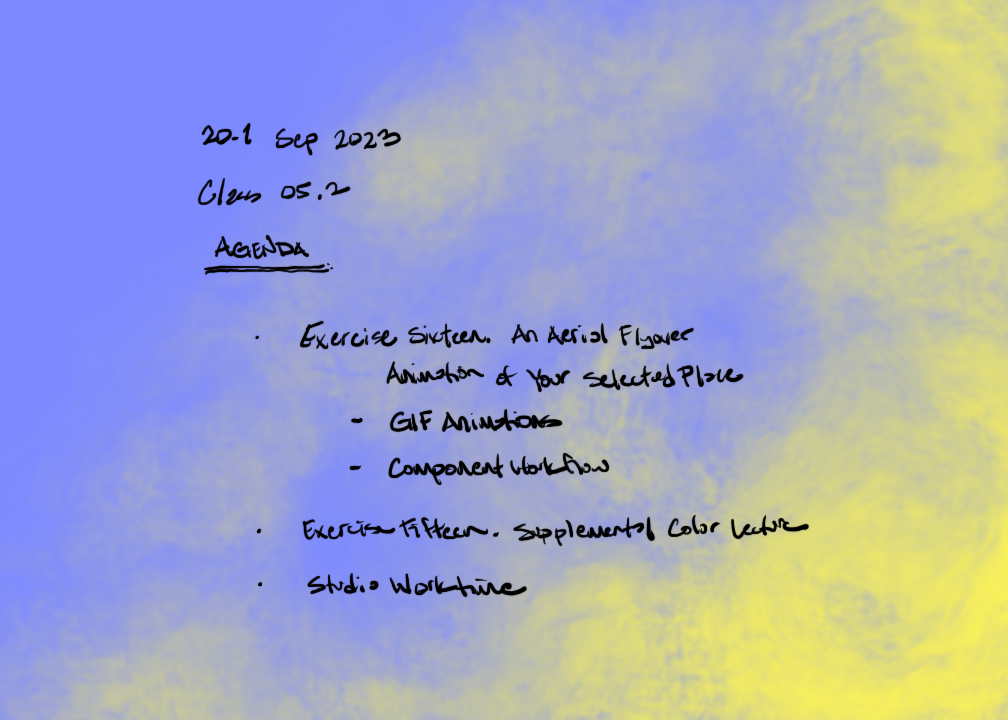 20-1 Sep 2023
Class 05.2
AGENDA
· Exercise Sixteen. An Aerial Flyover
Animation of Your Selected Place
- GIF Animations
- Component Workflow
· Exercise Fifteen. Supplemental Color Lecture
· Studio Worktime